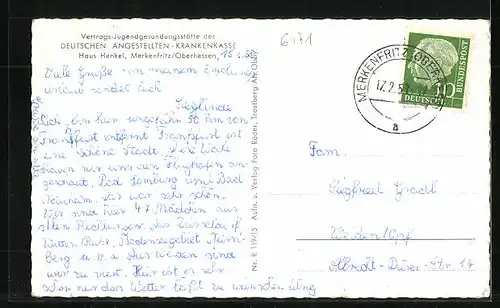 Vertrags-Jugendgesundungsstätte der
DEUTSCHEN ANGESTELLTEN-KRANKENKASSE
Haus Henkel, Merkenfritz/Oberhessen,
6171
Viele Grüße von meinem
urlaub sendet Euch
Sieglinde
Ich bin hier ungefähr 50 km von
Frankfurt entfernt. Frankfurt ist
eine schöne Stadt. Diese Woche
haben wir uns den Flughafen an-
geschaut, Bad Homburg und Bad
Nauheim. Es war sehr schön.
Wir sind hier 47 Mädchen aus
allen Richtungen, aus Düsseldorf
Witten Ruhr, Bodenseegebiet Nürn-
berg u.v.a. Aus Weiden sind
wir zu viert. Hier ist es sehr
schön nur das Wetter läßt zu wünschen übrig
Nr. R 119/15 Aufn. u. Verlag Foto Röder, Trostberg-Alz/Obb.
MERKENFRITZ
17.2.5
a
10
DEUTSCHE
BUNDESPOST
Fam.
Siegfried
Weiden/Opf
Albrecht-Dürer-Str. 14